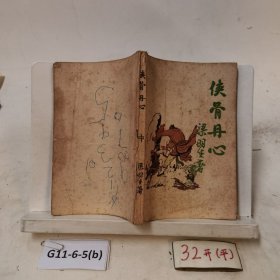 侠骨丹心
梁羽生著
侠骨丹心
中
梁羽生著
G11-6-5(b)
32开(平)